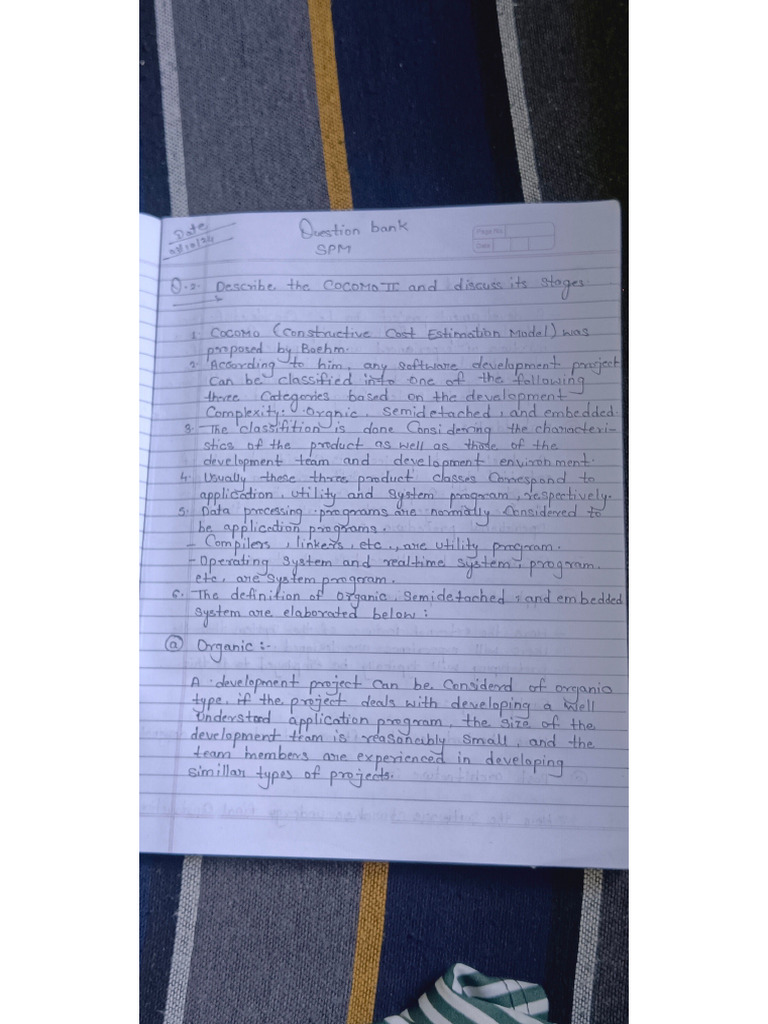 Date
Question bank
Page No.
SPM
Date
Q.2. Describe the COCOMO II and discuss its stages.
1. COCOMO (Constructive Cost Estimation Model) was
proposed by Boehm.
2. According to him, any software development project
can be classified into one of the following
three categories based on the development
Complexity: Orgnic, semidetached, and embedded.
3. The classifition is done Considering the characteri-
stics of the product as well as those of the
development team and development environment.
4. Usually these three product classes correspond to
application, utility and system program, respectively.
5. Data processing programs are normally considered to
be application programs.
- Compilers, linkers, etc., are utility program.
- Operating system and real-time system, program.
etc, are system program.
6. The definition of organic, semidetached, and embedded
system are elaborated below:
(a) Organic :-
A development project can be considerd of organic
type, if the project deals with developing a well
understood application program, the size of the
development team is reasonably small, and the
team members are experienced in developing
simillar types of projects.